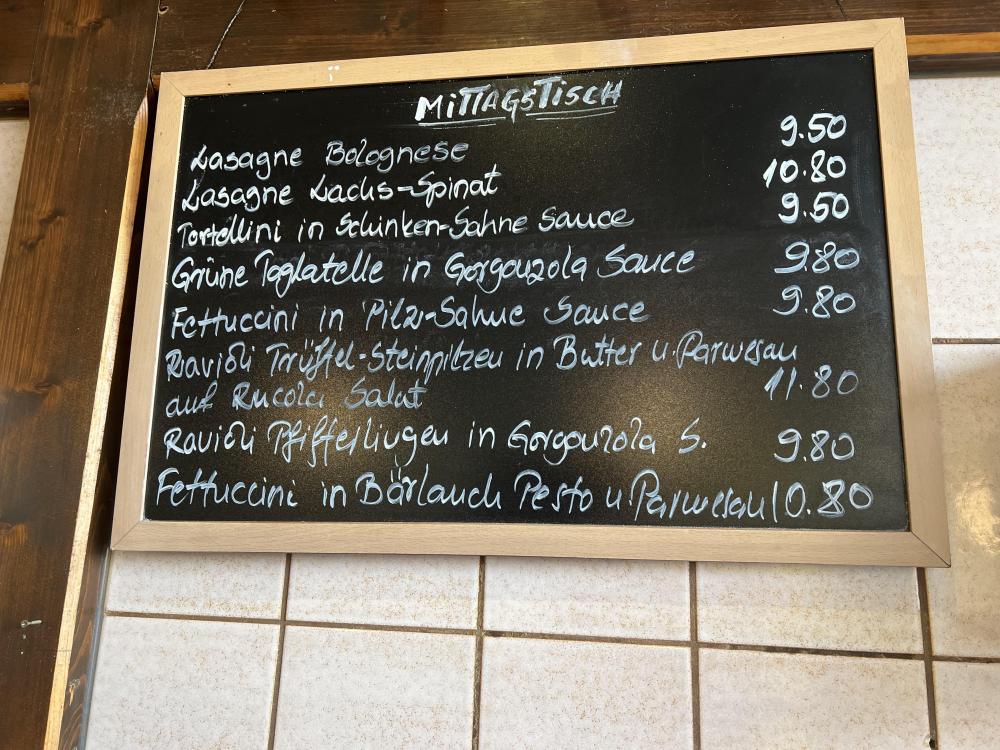 MITTAGSTISCH
Lasagne Bolognese 9.50
Lasagne Lachs-Spinat 10.80
Tortellini in Schinken-Sahne Sauce 9.50
Grüne Taglatelle in Gorgonzola Sauce 9.80
Fettuccini in Pilz-Sahne Sauce 9.80
Ravioli Trüffel-Steinpilzen in Butter u. Parmesan
auf Rucola Salat 11.80
Ravioli Pfifferlingen in Gorgonzola S. 9.80
Fettuccini in Bärlauch Pesto u Parmesan 10.80